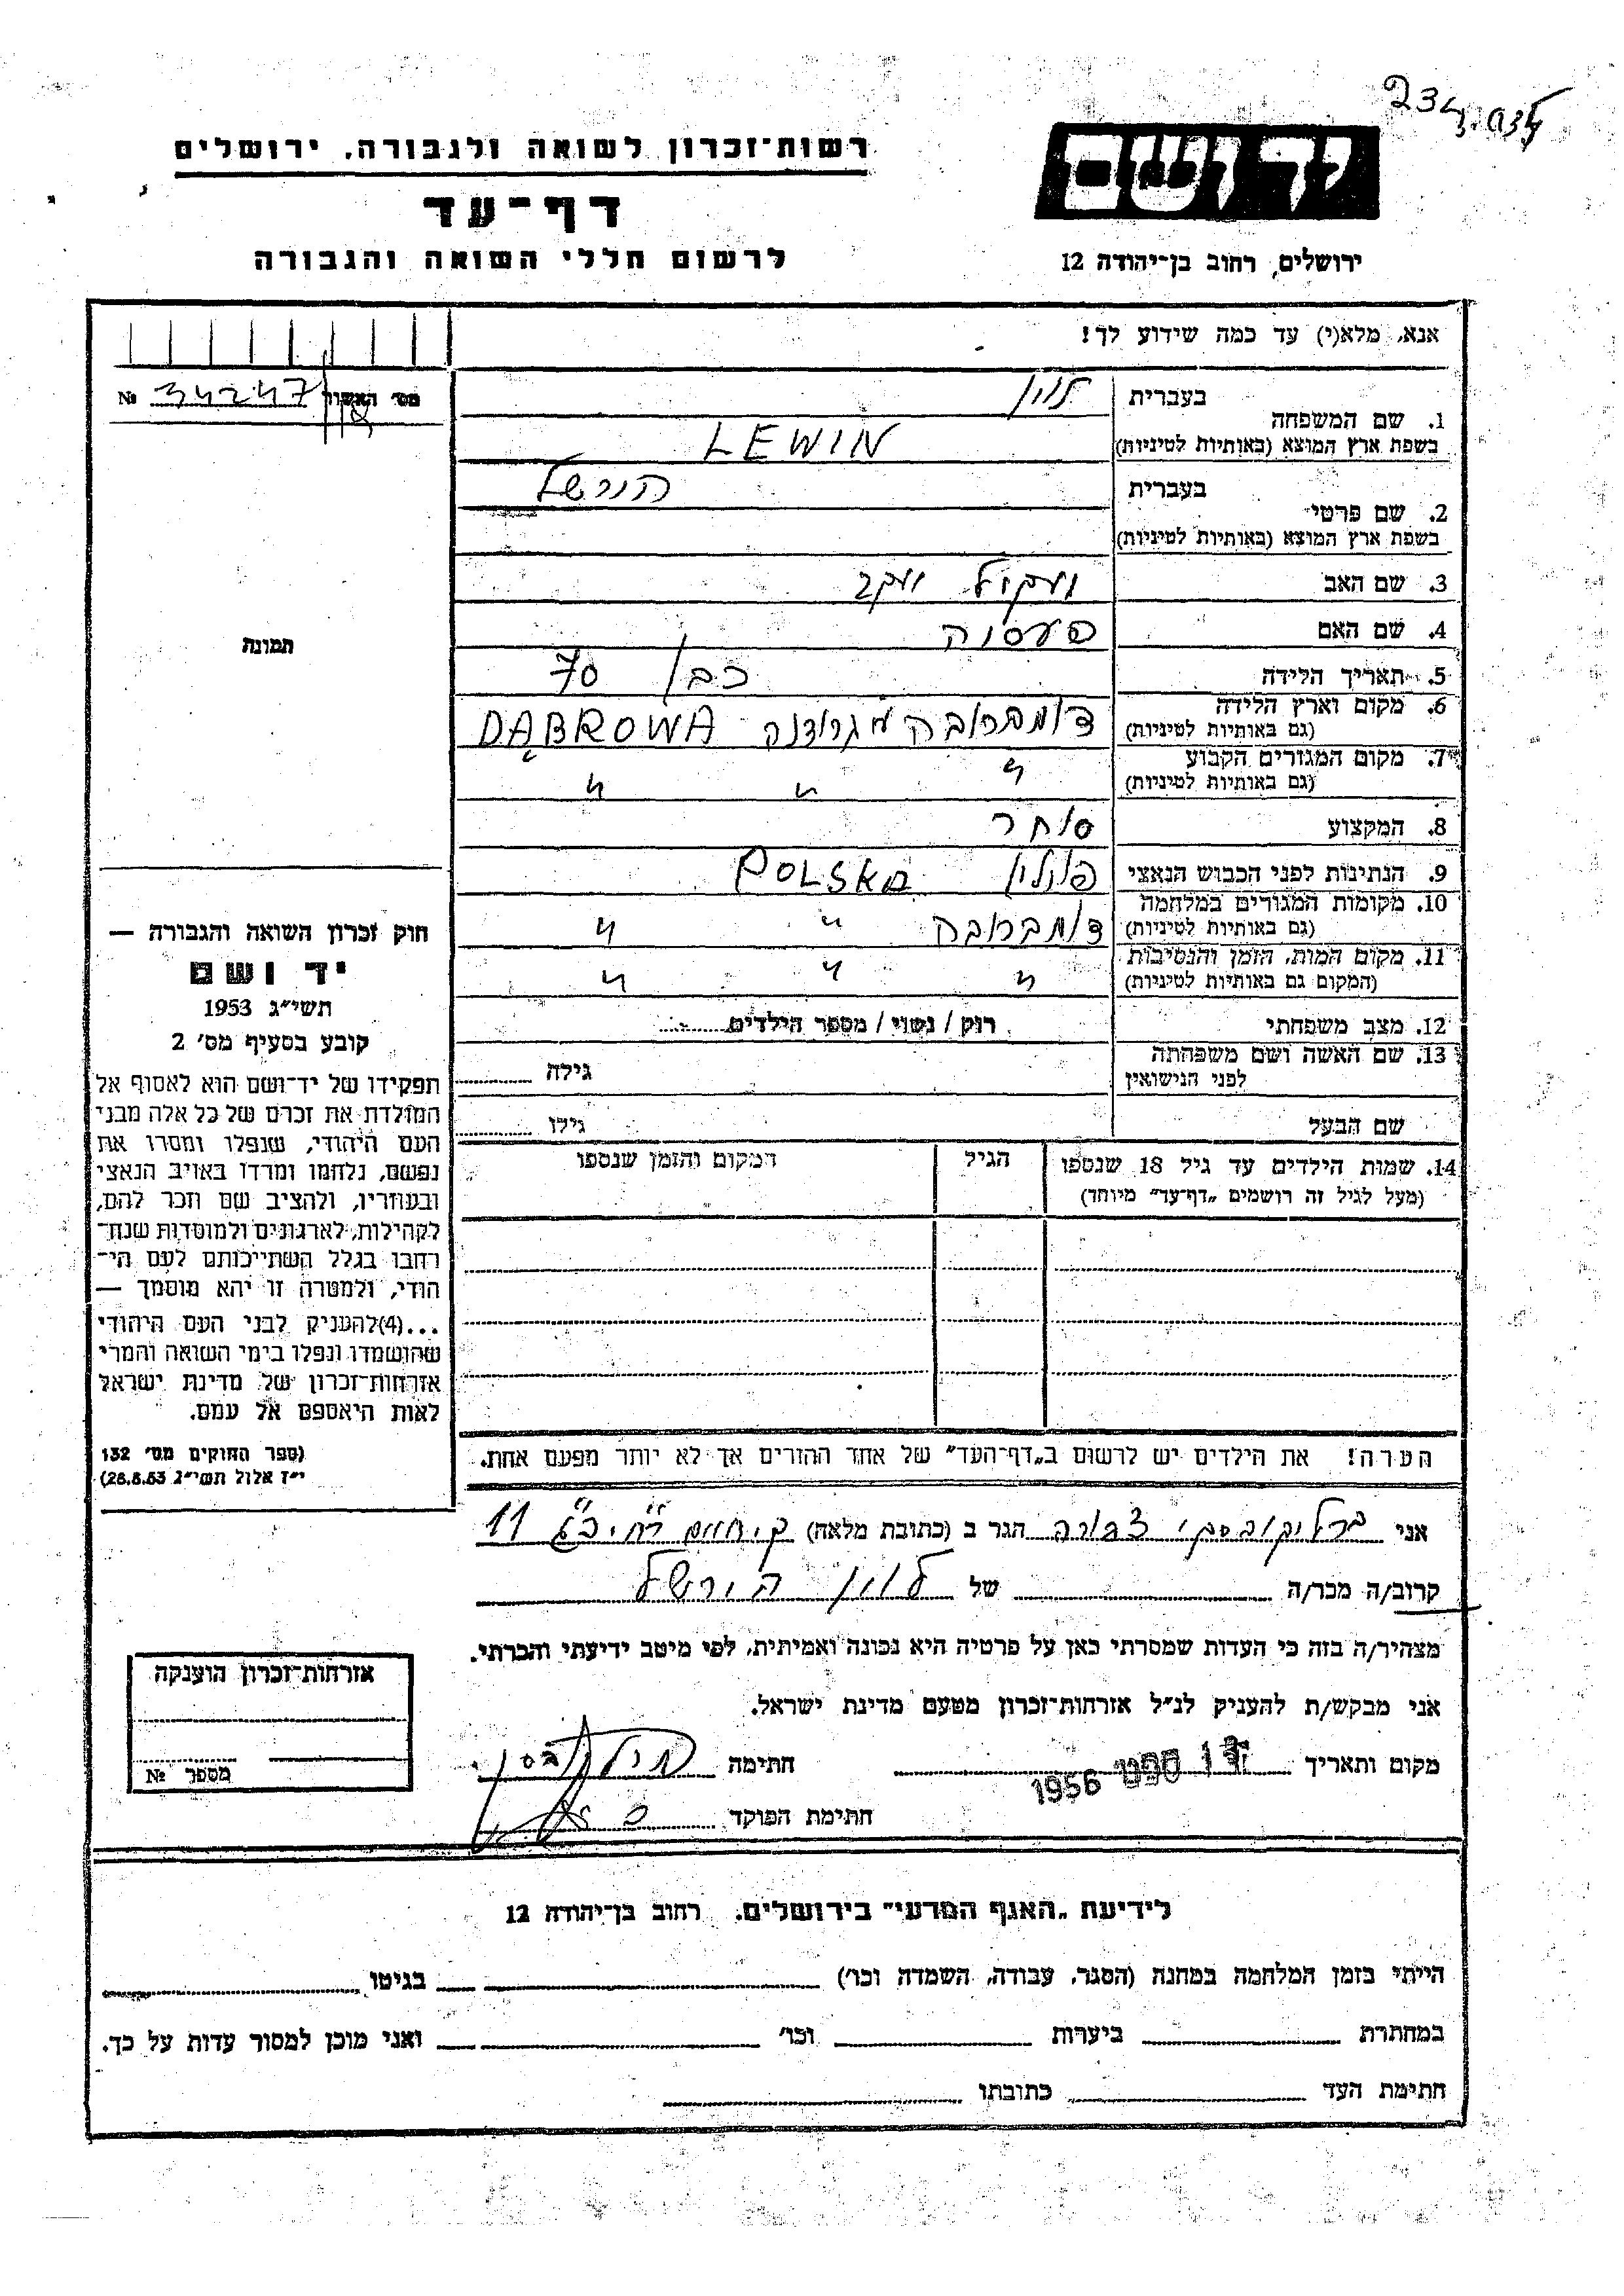 234
רשות־זכרון לשואה ולגבורה, ירושלים
יד ושם
דף־עד
לרשום חללי השואה והגבורה
ירושלים, רחוב בן־יהודה 12
אנא, מלא(י) עד כמה שידוע לך!
מס׳ האשור 34247 №
1. שם המשפחה
בעברית לוין
בשפת ארץ המוצא (באותיות לטיניות) LEWIN
2. שם פרטי
בעברית הירשל
בשפת ארץ המוצא (באותיות לטיניות)
3. שם האב
4. שם האם
5. תאריך הלידה כבן 70
6. מקום וארץ הלידה
(גם באותיות לטיניות) דומברובה מגרודנה DĄBROWA
7. מקום המגורים הקבוע
(גם באותיות לטיניות) " " "
8. המקצוע סוחר
9. הנתינות לפני הכבוש הנאצי פולין POLSKA
10. מקומות המגורים במלחמה
(גם באותיות לטיניות) דומברובה " "
11. מקום המות, הזמן והנסיבות
(המקום גם באותיות לטיניות) " " "
12. מצב משפחתי רווק / נשוי / מספר הילדים
13. שם האשה ושם משפחתה
לפני הנישואין גילה
שם הבעל גילו
14. שמות הילדים עד גיל 18 שנספו הגיל המקום והזמן שנספו
(מעל לגיל זה רושמים „דף־עד״ מיוחד)
תמונה
חוק זכרון השואה והגבורה —
יד ושם
תשי״ג 1953
קובע בסעיף מס׳ 2
תפקידו של יד־ושם הוא לאסוף אל
המולדת את זכרם של כל אלה מבני
העם היהודי, שנפלו ומסרו את
נפשם, נלחמו ומרדו באויב הנאצי
ובעוזריו, ולהציב שם וזכר להם,
לקהילות, לארגונים ולמוסדות שנח־
רבו בגלל השתייכותם לעם הי־
הודי, ולמטרה זו יהא מוסמך —
...(4)להעניק לבני העם היהודי
שהושמדו ונפלו בימי השואה והמרי
אזרחות־זכרון של מדינת ישראל
לאות היאספם אל עמם.
(ספר החוקים מס׳ 132
י״ז אלול תשי״ג 28.8.53)
הערה! את הילדים יש לרשום ב„דף־העד״ של אחד ההורים אך לא יותר מפעם אחת.
אני צפורה הגר ב (כתובת מלאה) 11
קרוב/ה מכר/ה של לוין הירשל
מצהיר/ה בזה כי העדות שמסרתי כאן על פרטיה היא נכונה ואמיתית, לפי מיטב ידיעתי והכרתי.
אני מבקש/ת להעניק לנ״ל אזרחות־זכרון מטעם מדינת ישראל.
מקום ותאריך ספט 1956 חתימה
חתימת הפוקד
אזרחות־זכרון הוענקה
מספר №
לידיעת „האגף המדעי״ בירושלים, רחוב בן־יהודה 12
הייתי בזמן המלחמה במחנה (הסגר, עבודה, השמדה וכו׳) בגיטו
במחתרת ביערות וכו׳ ואני מוכן למסור עדות על כך.
חתימת העד כתובתו